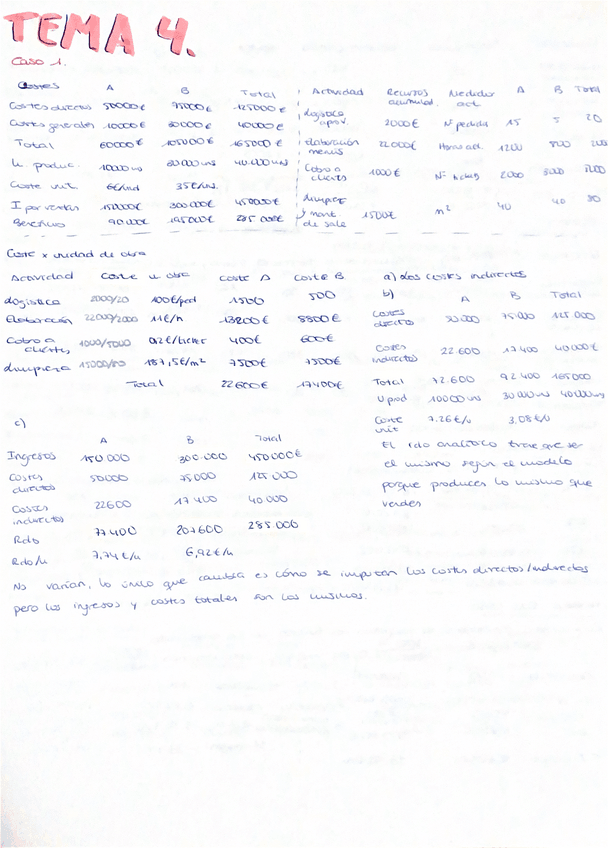 TEMA 4.
Caso 1.
Costes A B Total
Costes directos 50000€ 75000€ 125000€
Costes generales 10000€ 30000€ 40000€
Total 60000€ 105000€ 165000€
U. produc. 10000 uds 30000 uds 40.000 uds
Coste unit 6€/ud 3'5€/ud.
I por ventas 150000€ 300.000€ 450000€
Beneficio 90.000€ 195000€ 285.000€
Actividad Recursos acumulad. Medidor act. A B Total
Logística aprov. 2000€ Nº pedidos 15 5 20
Elaboración menús 22.000€ Horas act 1200 800
Cobro a clients 1000€ Nº tickets 2000 3000
Limpieza y mant. de sala 1500€ m² 40 40 80
Coste x unidad de obra
Actividad Coste u. obra Coste A Coste B
Logística 2000/20 100€/ped 1500 500
Elaboración 22000/2000 11€/h 13200€ 8800€
Cobro a clientes 1000/5000 0,2€/ticket 400€ 600€
Limpieza 15000/80 187,5€/m² 7500€ 7500€
Total 22600€ 17400€
a) Los costes indirectos
b) A B Total
Costes directos 50.000 75.000 125.000
Costes indirectos 22.600 17400 40.000€
Total 72.600 92.400 165000
U prod 10000 us 30000 us 40000 us
Coste unit 7.26€/u 3.08€/u
El rdo analítico tiene que ser
el mismo según el modelo
porque produces lo mismo que
vendes
c)
A B Total
Ingresos 150.000 300.000 450000€
Costes directos 50000 75000 125.000
Costes indirectos 22600 17.400 40.000
Rdo 77400 207600 285.000
Rdo/u 7,74€/u 6,92€/u
No varían, lo único que cambia es cómo se imputan los costes directos/indirectos
pero los ingresos y costes totales son los mismos.